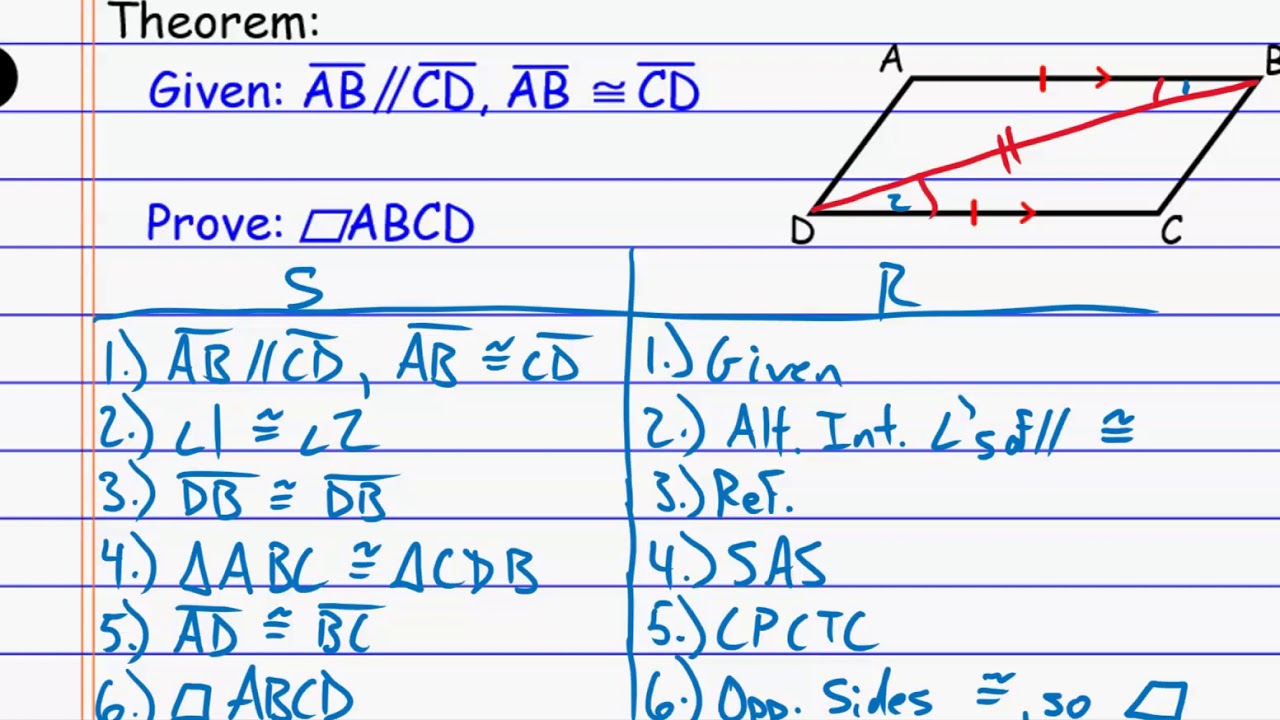 Theorem:
Given: AB // CD, AB ≅ CD
Prove: ▱ABCD
A
B
D
C
1
2
S R
1.) AB // CD, AB ≅ CD 1.) Given
2.) ∠1 ≅ ∠2 2.) Alt. Int. ∠'s of // ≅
3.) DB ≅ DB 3.) Ref.
4.) ΔABC ≅ ΔCDB 4.) SAS
5.) AD ≅ BC 5.) CPCTC
6.) ▱ABCD 6.) Opp. Sides ≅, so ▱